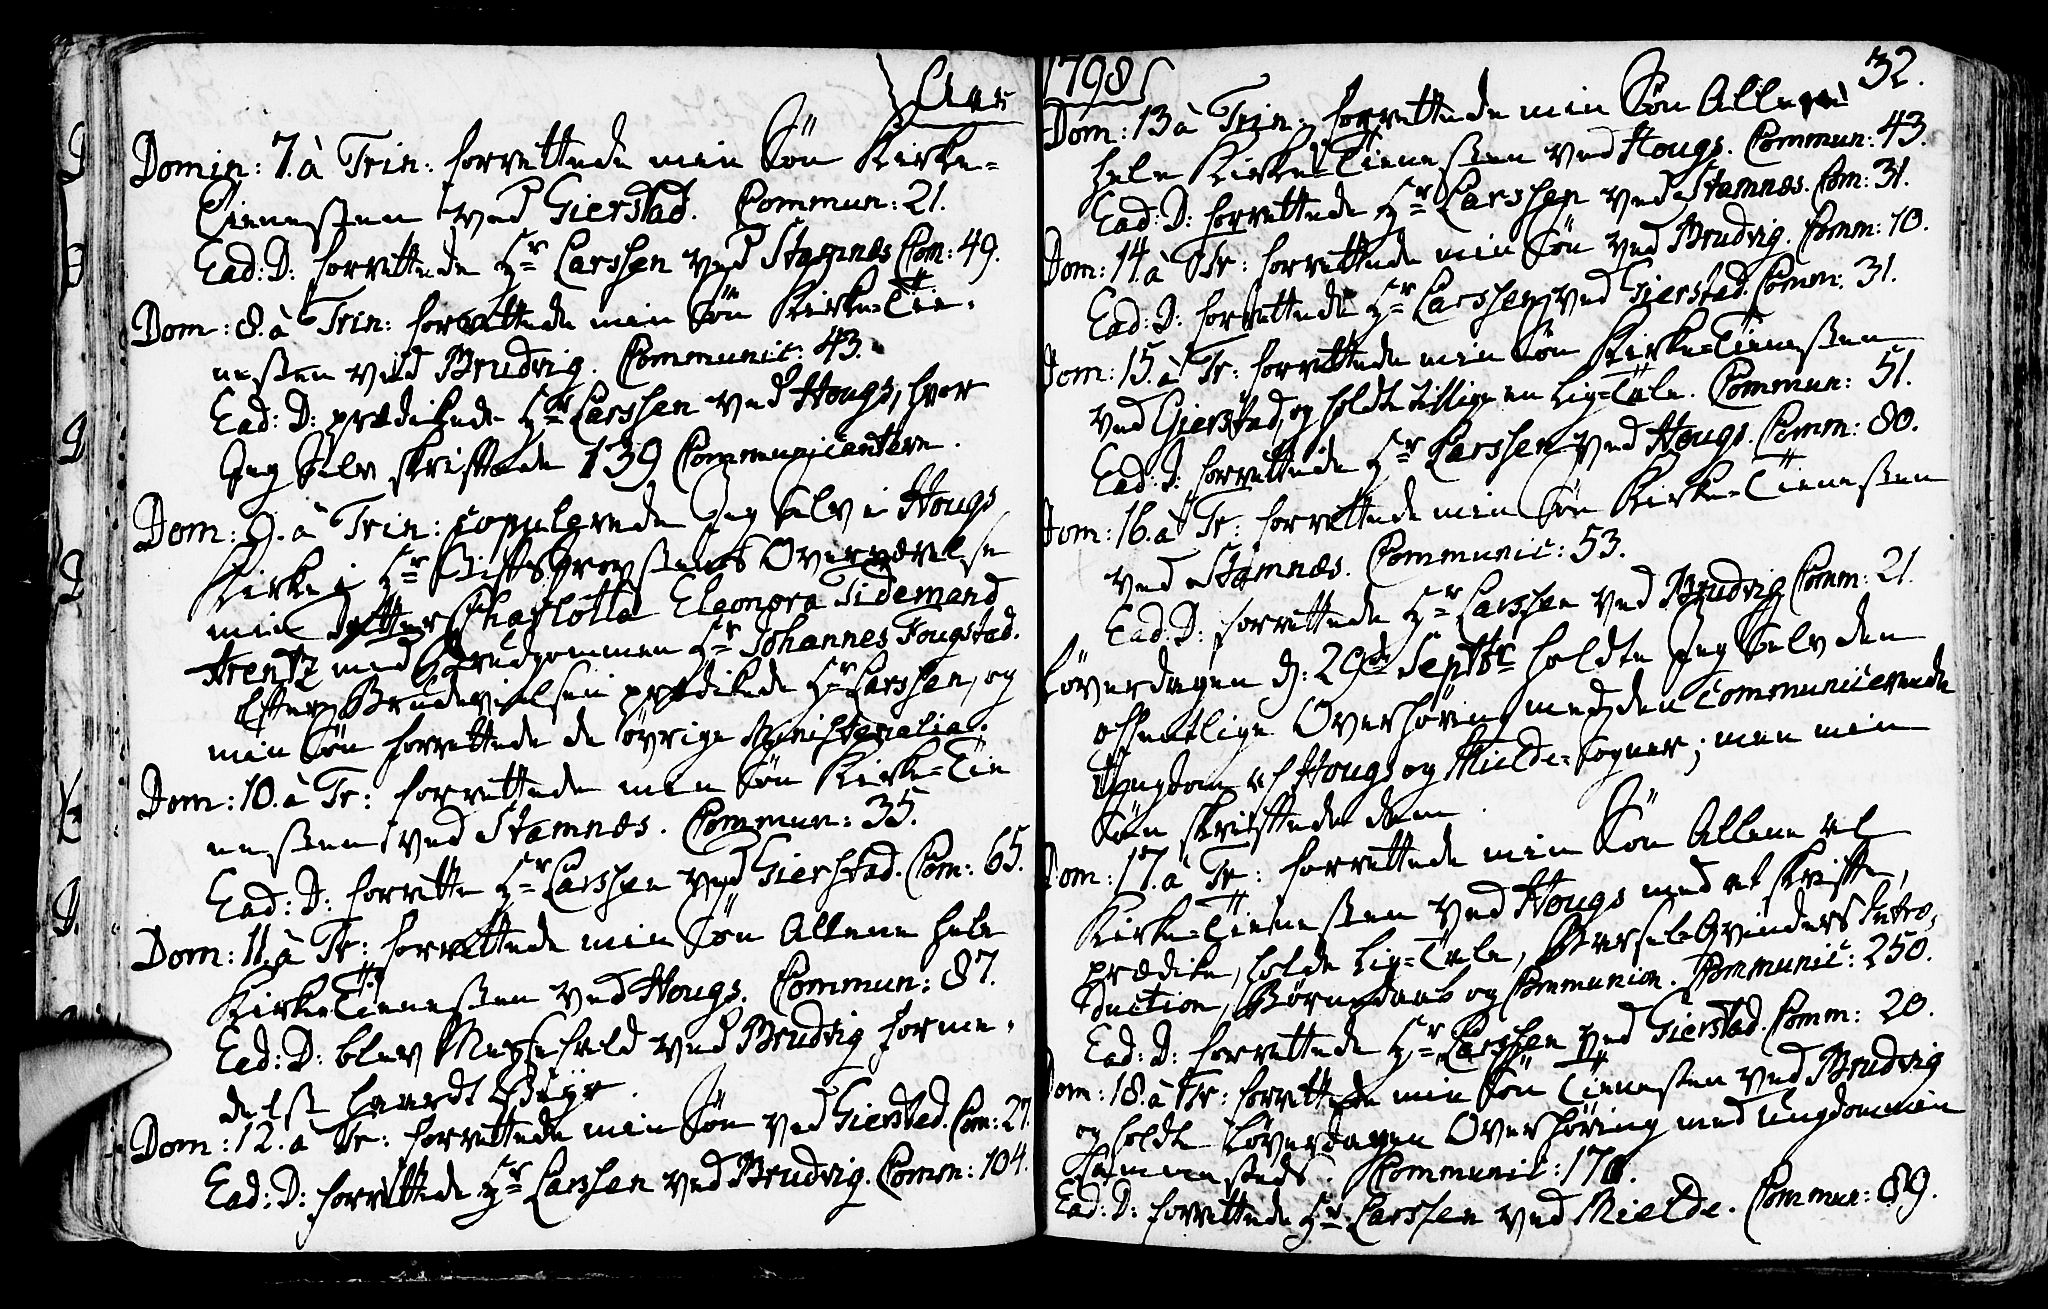 Aar
Domin: 7. à Trin: forrettede min Søn Kirke-
Tienesten ved Gierstad. Commun: 21.
Ead: D: forrettede Hr Larssen ved Stamnæs Com: 49.
Dom: 8. à Trin: forrettede min Søn Kirke-Tie-
nesten ved Brudvig. Communic: 43.
Ead: D: prædikede Hr Larssen ved Hougs, hvor
Jeg Selv skriftede 139 Communicantere.
Dom: 9. à Trin: copulerede Jeg Selv i Hougs
Kirke i Hr StiftsProvstens Overværelse
min Datter Charlotta Eleonora Tidemand
Arentz med Brudgommen Hr Johannes Fougstad.
Efter Brudevielsen prædikede Hr Larssen, og
min Søn forrettede de øvrige Ministerialia.
Dom: 10. à Tr: forrettede min Søn Kirke-Tie
nesten ved Stamnæs. Commun: 35.
Ead: D: forrette Hr Larssen ved Gierstad. Com: 65.
Dom: 11. à Tr: forrettede min Søn Allene hele
KirkeTienesten ved Hougs. Commun: 87.
Ead: D: blev Messefald ved Brudvig forme-
delst haardt Veyr.
Dom: 12. à Tr: forrettede min Søn ved Gierstad. Com: 27.
Ead: D: forrettede Hr Larssen ved Brudvig. Comm: 104.
1798
32.
Dom: 13 à Trin: forrettede min Søn Allene
hele Kirke-Tienesten ved Hougs. Commun: 43.
Ead: D: forrettede Hr Larssen ved Stamnæs. Com: 31.
Dom: 14. à Tr: forrettede min Søn ved Brudvig. Comm: 10.
Ead: D: forrettede Hr Larssen ved Gierstad. Comm: 31.
Dom: 15. à Tr: forrettede min Søn Kirke-Tienesten
ved Gierstad, og holdte tillige en Lig-Tale. Commun: 51.
Ead: D: forrettede Hr Larssen ved Hougs. Comm: 80.
Dom: 16. à Tr: forrettede min Søn Kirke-Tienesten
ved Stamnæs. Communic: 53.
Ead: D: forrettede Hr Larssen ved Brudvig Comm: 21.
Løverdagen d: 29de Septbr holdte Jeg Selv den
offentlige Overhøring med den communicerende
Ungdom af Hougs og Mielde-Sogner; men min
Søn skriftede dem.
Dom: 17. à Tr: forrettede min Søn Allene al
Kirke-Tienesten ved Hougs med at skrifte,
prædike, holde Lig-Tale, BarselQvinders Intro-
duction, Børnedaab og Communion. Communic: 250.
Ead: D: forrettede Hr Larssen ved Gierstad. Comm: 20.
Dom: 18. à Tr: forrettede min Søn Tienesten ved Brudvig
og holdte Løverdagen Overhøring med Ungdommen
sammesteds. Communic: 170.
Ead: D: forrettede Hr. Larssen ved Mielde. Commun: 89.